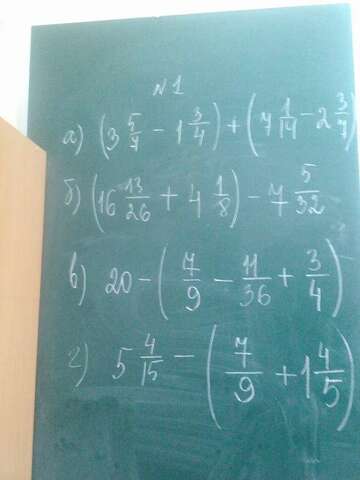 №1
а) (3 5/7 - 1 3/4) + (7 1/14 - 2 3/7)
б) (16 13/26 + 4 1/8) - 7 5/32
в) 20 - (7/9 - 11/36 + 3/4)
г) 5 4/15 - (7/9 + 1 4/5)